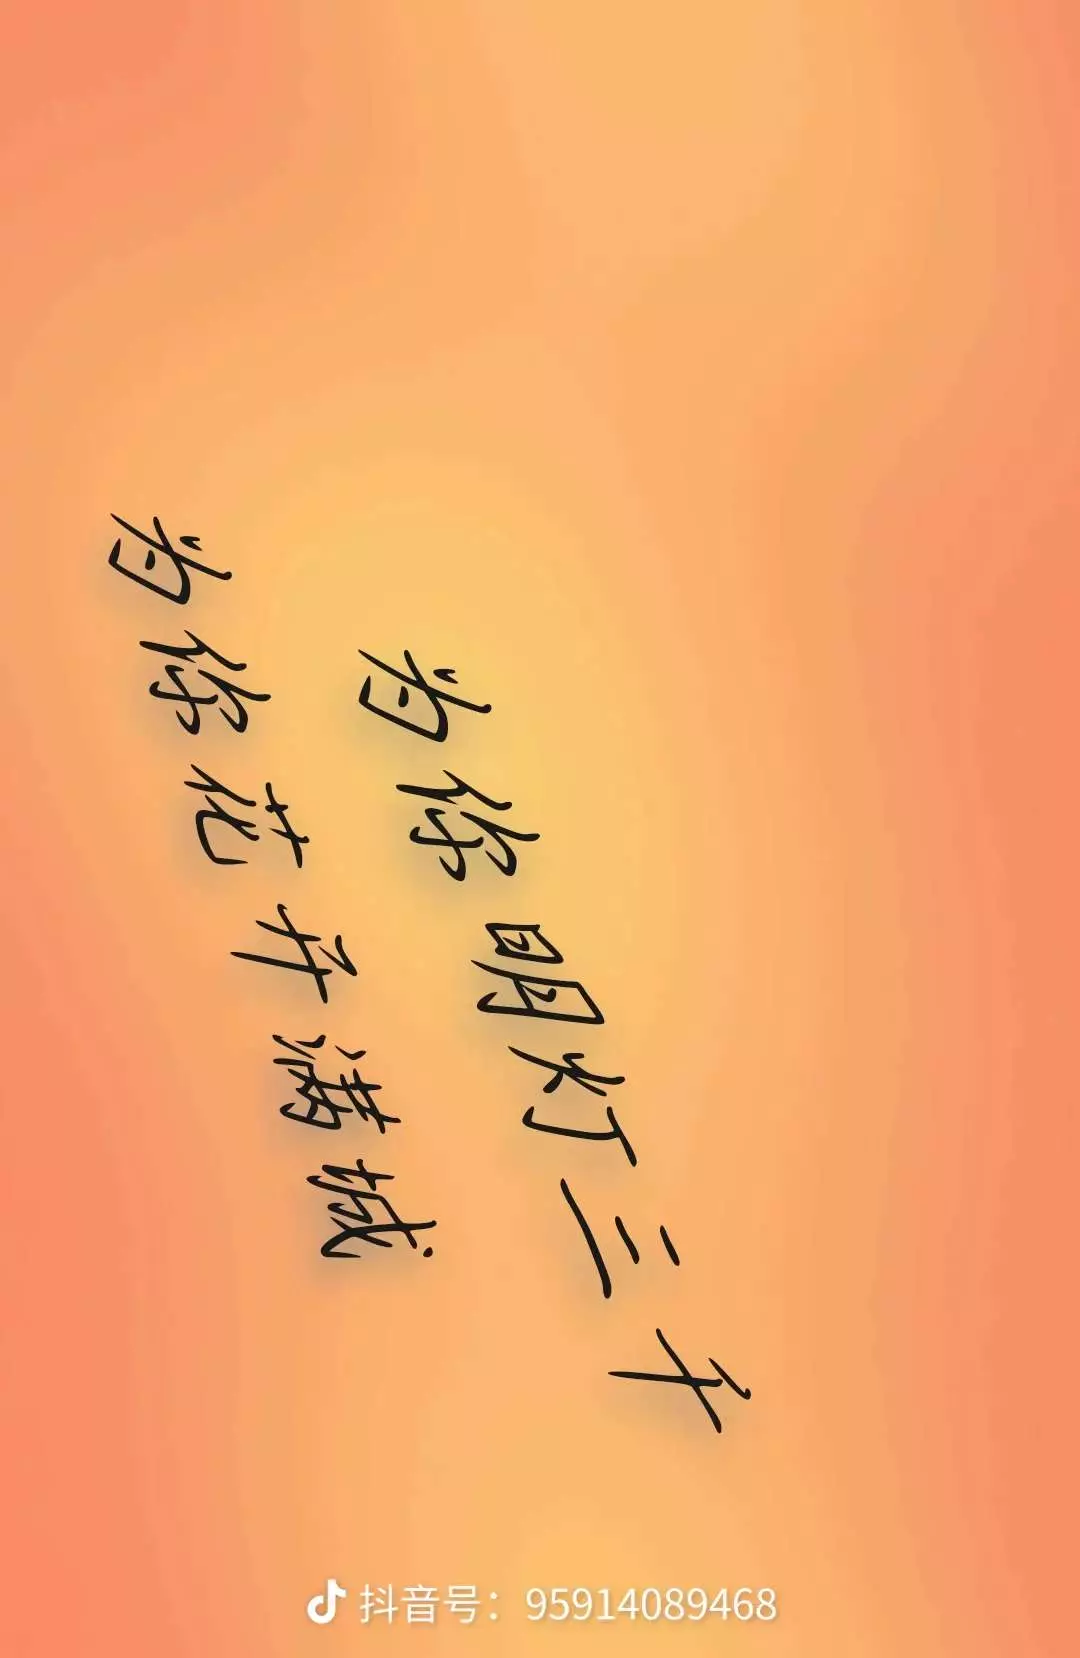 为你明灯三千
为你花开满城
抖音号：95914089468